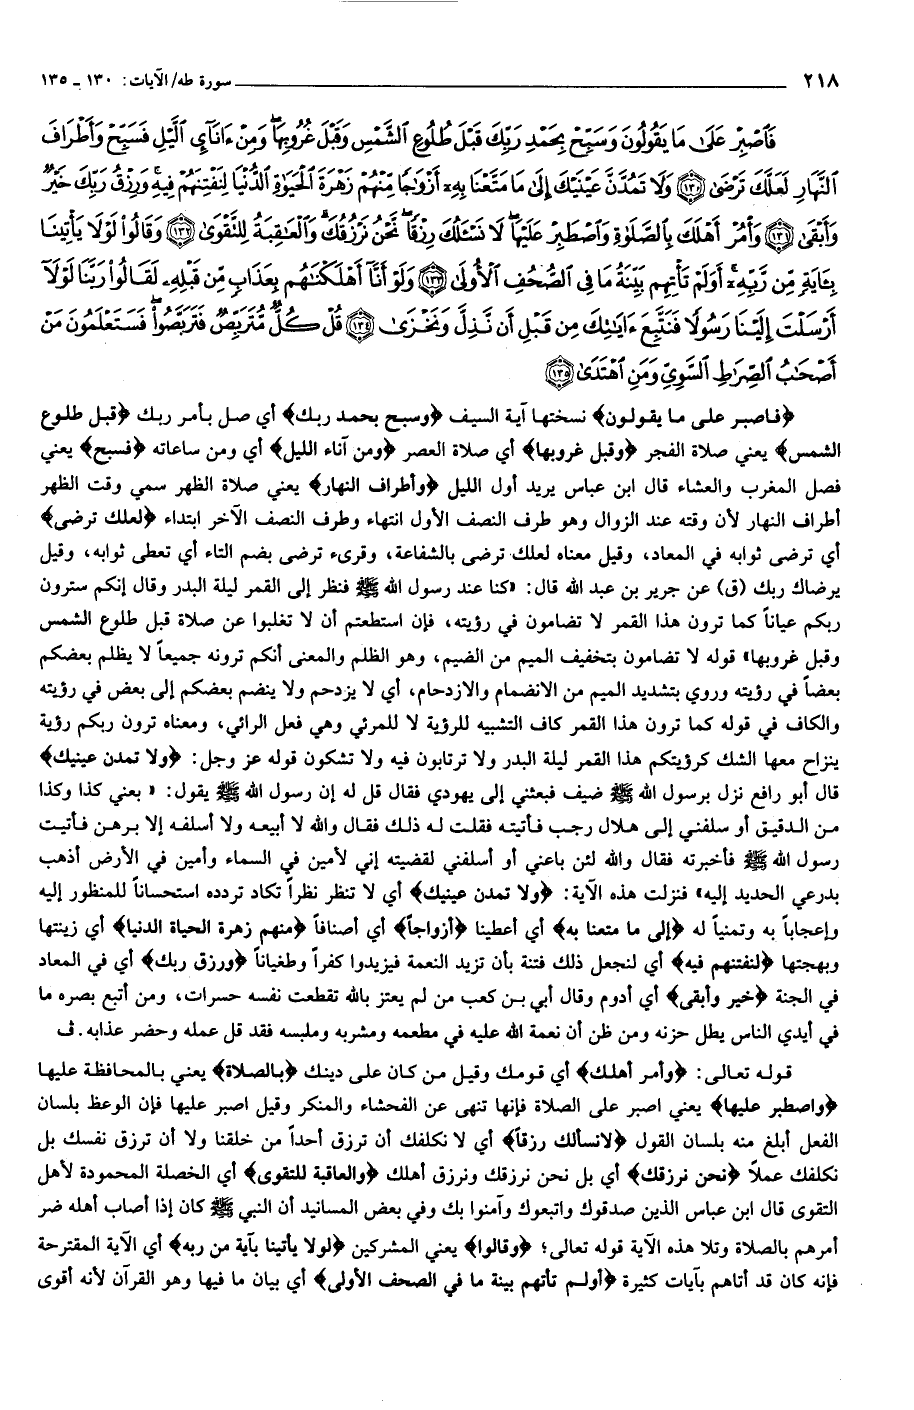 ٢١٨ سورة طه/ الآيات: ١٣٠ ـ ١٣٥
فَٱصْبِرْ عَلَىٰ مَا يَقُولُونَ وَسَبِّحْ بِحَمْدِ رَبِّكَ قَبْلَ طُلُوعِ ٱلشَّمْسِ وَقَبْلَ غُرُوبِهَا ۖ وَمِنْ ءَانَآىِٕ ٱلَّيْلِ فَسَبِّحْ وَأَطْرَافَ
ٱلنَّهَارِ لَعَلَّكَ تَرْضَىٰ ﴿١٣٠﴾ وَلَا تَمُدَّنَّ عَيْنَيْكَ إِلَىٰ مَا مَتَّعْنَا بِهِۦٓ أَزْوَٰجًا مِّنْهُمْ زَهْرَةَ ٱلْحَيَوٰةِ ٱلدُّنْيَا لِنَفْتِنَهُمْ فِيهِ ۚ وَرِزْقُ رَبِّكَ خَيْرٌ
وَأَبْقَىٰ ﴿١٣١﴾ وَأْمُرْ أَهْلَكَ بِٱلصَّلَوٰةِ وَٱصْطَبِرْ عَلَيْهَا ۖ لَا نَسْـَٔلُكَ رِزْقًا ۖ نَّحْنُ نَرْزُقُكَ ۗ وَٱلْعَٰقِبَةُ لِلتَّقْوَىٰ ﴿١٣٢﴾ وَقَالُوا۟ لَوْلَا يَأْتِينَا
بِـَٔايَةٍ مِّن رَّبِّهِۦٓ ۚ أَوَلَمْ تَأْتِهِم بَيِّنَةُ مَا فِى ٱلصُّحُفِ ٱلْأُولَىٰ ﴿١٣٣﴾ وَلَوْ أَنَّآ أَهْلَكْنَٰهُم بِعَذَابٍ مِّن قَبْلِهِۦ لَقَالُوا۟ رَبَّنَا لَوْلَآ
أَرْسَلْتَ إِلَيْنَا رَسُولًا فَنَتَّبِعَ ءَايَٰتِكَ مِن قَبْلِ أَن نَّذِلَّ وَنَخْزَىٰ ﴿١٣٤﴾ قُلْ كُلٌّ مُّتَرَبِّصٌ فَتَرَبَّصُوا۟ ۖ فَسَتَعْلَمُونَ مَنْ
أَصْحَٰبُ ٱلصِّرَٰطِ ٱلسَّوِىِّ وَمَنِ ٱهْتَدَىٰ ﴿١٣٥﴾
﴿فاصبر على ما يقولون﴾ نسختها آية السيف ﴿وسبح بحمد ربك﴾ أي صل بأمر ربك ﴿قبل طلوع
الشمس﴾ يعني صلاة الفجر ﴿وقبل غروبها﴾ أي صلاة العصر ﴿ومن آناء الليل﴾ أي ومن ساعاته ﴿فسبح﴾ يعني
فصل المغرب والعشاء قال ابن عباس يريد أول الليل ﴿وأطراف النهار﴾ يعني صلاة الظهر سمي وقت الظهر
أطراف النهار لأن وقته عند الزوال وهو طرف النصف الأول انتهاء وطرف النصف الآخر ابتداء ﴿لعلك ترضى﴾
أي ترضى ثوابه في المعاد، وقيل معناه لعلك ترضى بالشفاعة، وقرىء ترضى بضم التاء أي تعطى ثوابه، وقيل
يرضاك ربك (ق) عن جرير بن عبد الله قال: «كنا عند رسول الله ﷺ فنظر إلى القمر ليلة البدر وقال إنكم سترون
ربكم عياناً كما ترون هذا القمر لا تضامون في رؤيته، فإن استطعتم أن لا تغلبوا عن صلاة قبل طلوع الشمس
وقبل غروبها» قوله لا تضامون بتخفيف الميم من الضيم، وهو الظلم والمعنى أنكم ترونه جميعاً لا يظلم بعضكم
بعضاً في رؤيته وروي بتشديد الميم من الانضمام والازدحام، أي لا يزدحم ولا ينضم بعضكم إلى بعض في رؤيته
والكاف في قوله كما ترون هذا القمر كاف التشبيه للرؤية لا للمرئي وهي فعل الرائي، ومعناه ترون ربكم رؤية
ينزاح معها الشك كرؤيتكم هذا القمر ليلة البدر ولا ترتابون فيه ولا تشكون قوله عز وجل: ﴿ولا تمدن عينيك﴾
قال أبو رافع نزل برسول الله ﷺ ضيف فبعثني إلى يهودي فقال قل له إن رسول الله ﷺ يقول: « بعني كذا وكذا
من الدقيق أو سلفني إلى هلال رجب فأتيته فقلت له ذلك فقال والله لا أبيعه ولا أسلفه إلا برهن فأتيت
رسول الله ﷺ فأخبرته فقال والله لئن باعني أو أسلفني لقضيته إني لأمين في السماء وأمين في الأرض أذهب
بدرعي الحديد إليه» فنزلت هذه الآية: ﴿ولا تمدن عينيك﴾ أي لا تنظر نظراً تكاد تردده استحساناً للمنظور إليه
وإعجاباً به وتمنياً له ﴿إلى ما متعنا به﴾ أي أعطينا ﴿أزواجاً﴾ أي أصنافاً ﴿منهم زهرة الحياة الدنيا﴾ أي زينتها
وبهجتها ﴿لنفتنهم فيه﴾ أي لنجعل ذلك فتنة بأن تزيد النعمة فيزيدوا كفراً وطغياناً ﴿ورزق ربك﴾ أي في المعاد
في الجنة ﴿خير وأبقى﴾ أي أدوم وقال أبي بن كعب من لم يعتز بالله تقطعت نفسه حسرات، ومن أتبع بصره ما
في أيدي الناس يطل حزنه ومن ظن أن نعمة الله عليه في مطعمه ومشربه وملبسه فقد قل عمله وحضر عذابه. ف
قوله تعالى: ﴿وأمر أهلك﴾ أي قومك وقيل من كان على دينك ﴿بالصلاة﴾ يعني بالمحافظة عليها
﴿واصطبر عليها﴾ يعني اصبر على الصلاة فإنها تنهى عن الفحشاء والمنكر وقيل اصبر عليها فإن الوعظ بلسان
الفعل أبلغ منه بلسان القول ﴿لانسألك رزقاً﴾ أي لا نكلفك أن ترزق أحداً من خلقنا ولا أن ترزق نفسك بل
نكلفك عملاً ﴿نحن نرزقك﴾ أي بل نحن نرزقك ونرزق أهلك ﴿والعاقبة للتقوى﴾ أي الخصلة المحمودة لأهل
التقوى قال ابن عباس الذين صدقوك واتبعوك وآمنوا بك وفي بعض المسانيد أن النبي ﷺ كان إذا أصاب أهله ضر
أمرهم بالصلاة وتلا هذه الآية قوله تعالى؛ ﴿وقالوا﴾ يعني المشركين ﴿لولا يأتينا بآية من ربه﴾ أي الآية المقترحة
فإنه كان قد أتاهم بآيات كثيرة ﴿أولم تأتهم بينة ما في الصحف الأولى﴾ أي بيان ما فيها وهو القرآن لأنه أقوى